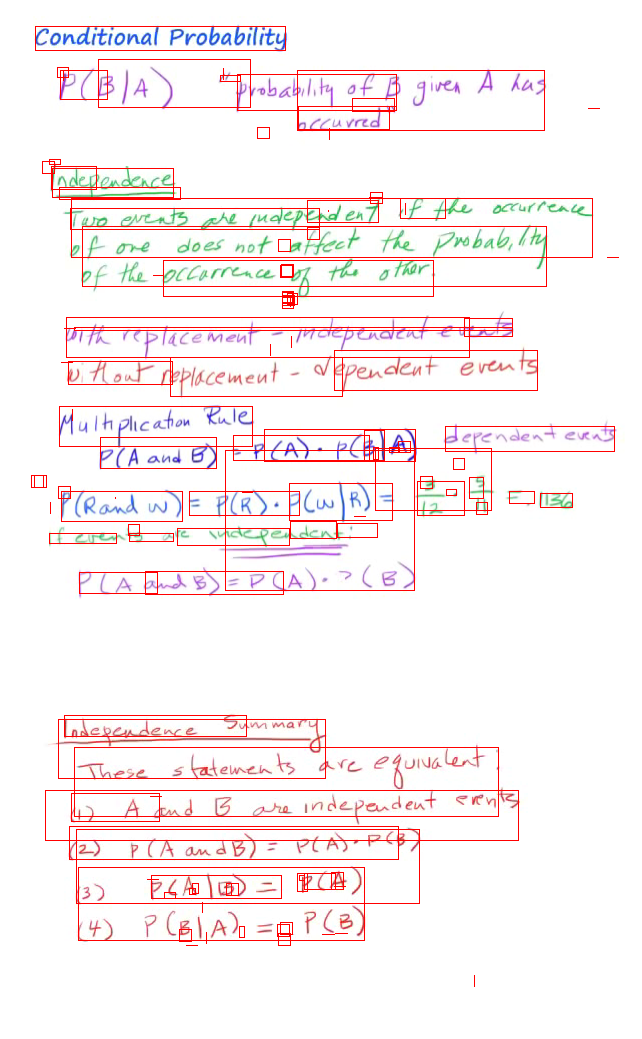 Conditional Probability
P(B|A) "probability of B given A has
occurred
Independence
Two events are independent if the occurrence
of one does not affect the probability
of the occurrence of the other.
with replacement - independent events
without replacement - dependent events
Multiplication Rule
P(A and B) = P(A) · P(B|A) dependent events
P(R and W) = P(R) · P(W|R) = 3/12 · 5/11 = .136
if events are independent:
P(A and B) = P(A) · P(B)
Independence Summary
These statements are equivalent:
(1) A and B are independent events
(2) P(A and B) = P(A) · P(B)
(3) P(A|B) = P(A)
(4) P(B|A) = P(B)